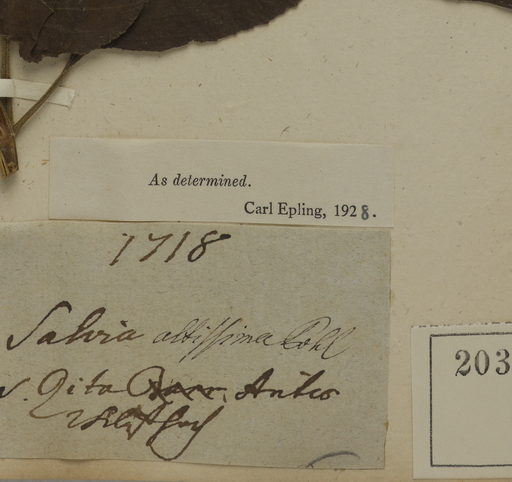 As determined.
Carl Epling, 1928.
1718
Salvia altissima Pohl
Rita Antes
203